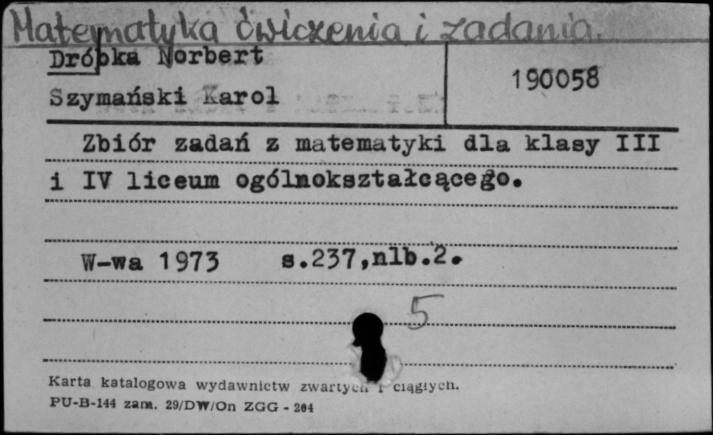 Matematyka ćwiczenia i zadania.
Dróbka Norbert
190058
Szymański Karol
Zbiór zadań z matematyki dla klasy III
i IV liceum ogólnokształcącego.
W-wa 1973 s.237,nlb.2.
5
Karta katalogowa wydawnictw zwartych i ciągłych.
PU-B-144 zam. 29/DW/On ZGG - 204